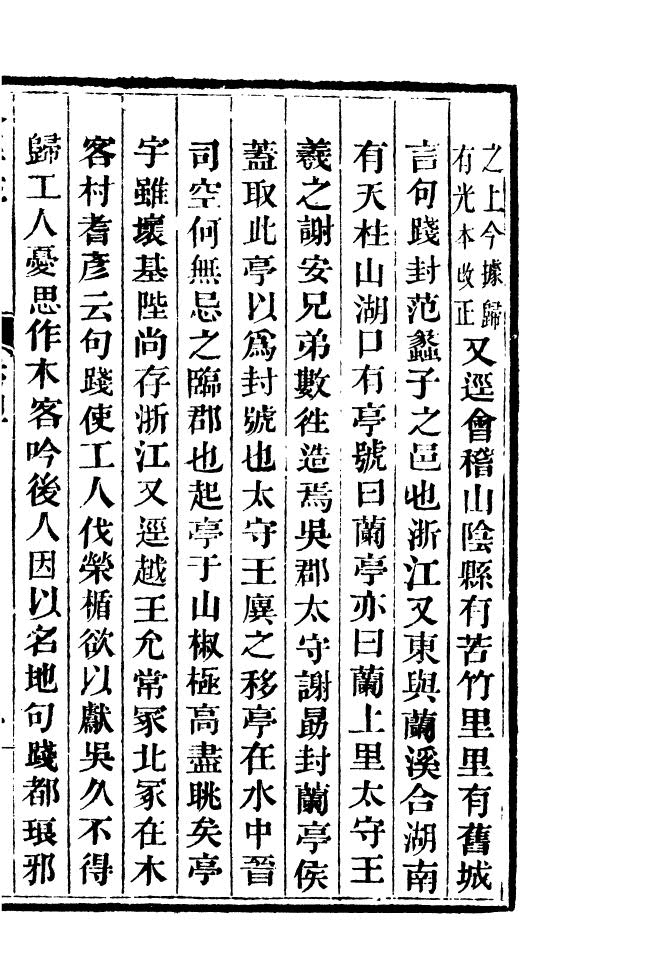 之上今據歸
有光本改正又逕會稽山陰縣有苦竹里里有舊城
言句踐封范蠡子之邑也浙江又東與蘭溪合湖南
有天柱山湖口有亭號曰蘭亭亦曰蘭上里太守王
羲之謝安兄弟數往造焉吳郡太守謝勗封蘭亭侯
蓋取此亭以爲封號也太守王廙之移亭在水中晉
司空何無忌之臨郡也起亭于山椒極高盡眺矣亭
宇雖壞基陛尚存浙江又逕越王允常冢北冢在木
客村耆彥云句踐使工人伐榮楯欲以獻吳久不得
歸工人憂思作木客吟後人因以名地句踐都琅邪